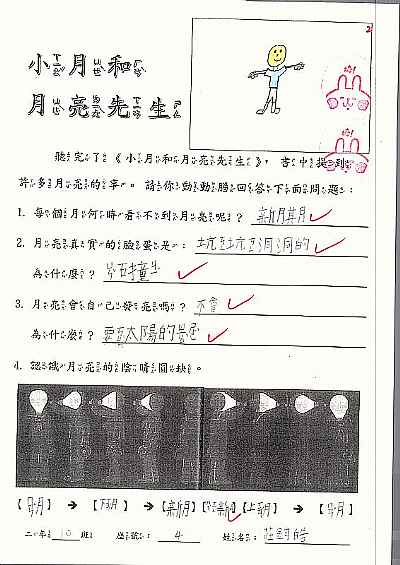 小月和
月亮先生
聽完了《小月和月亮先生》，書中提到
許多月亮的事。請你動動腦回答下面問題：
1. 每個月何時看不到月亮呢？新月
2. 月亮真實的臉蛋是：坑坑洞洞的
為什麼？
3. 月亮會自己發亮嗎？不會
為什麼？太陽的
4. 認識月亮的陰晴圓缺。
【月】→【下弦月】→【新月】【上弦月】→【月】
二年10班 座號：4 姓名：